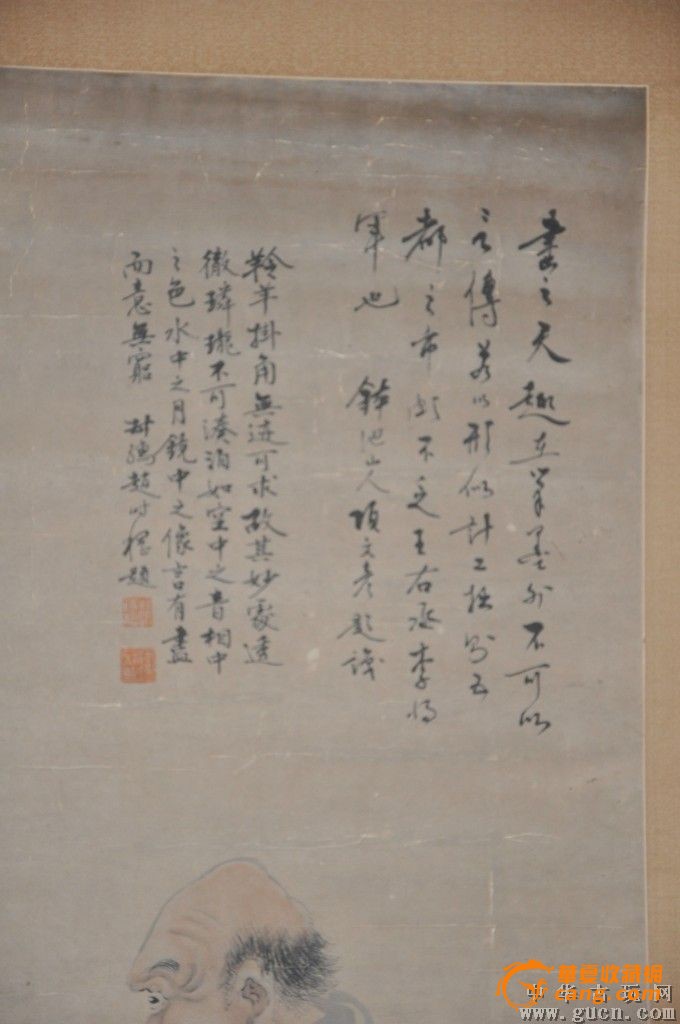 畫之天趣在筆墨外不可以
言傳若以形似計工拙則五
都之市不乏王右丞李將
軍也 鉢池山人項文彥題識
羚羊掛角無迹可求故其妙處透
徹璘瓏不可湊泊如空中之音相中
之色水中之月鏡中之像言有盡
而意無窮 叔孺趙時棡題
华夏收藏网
cang.com
中华古玩网
www.gucn.com